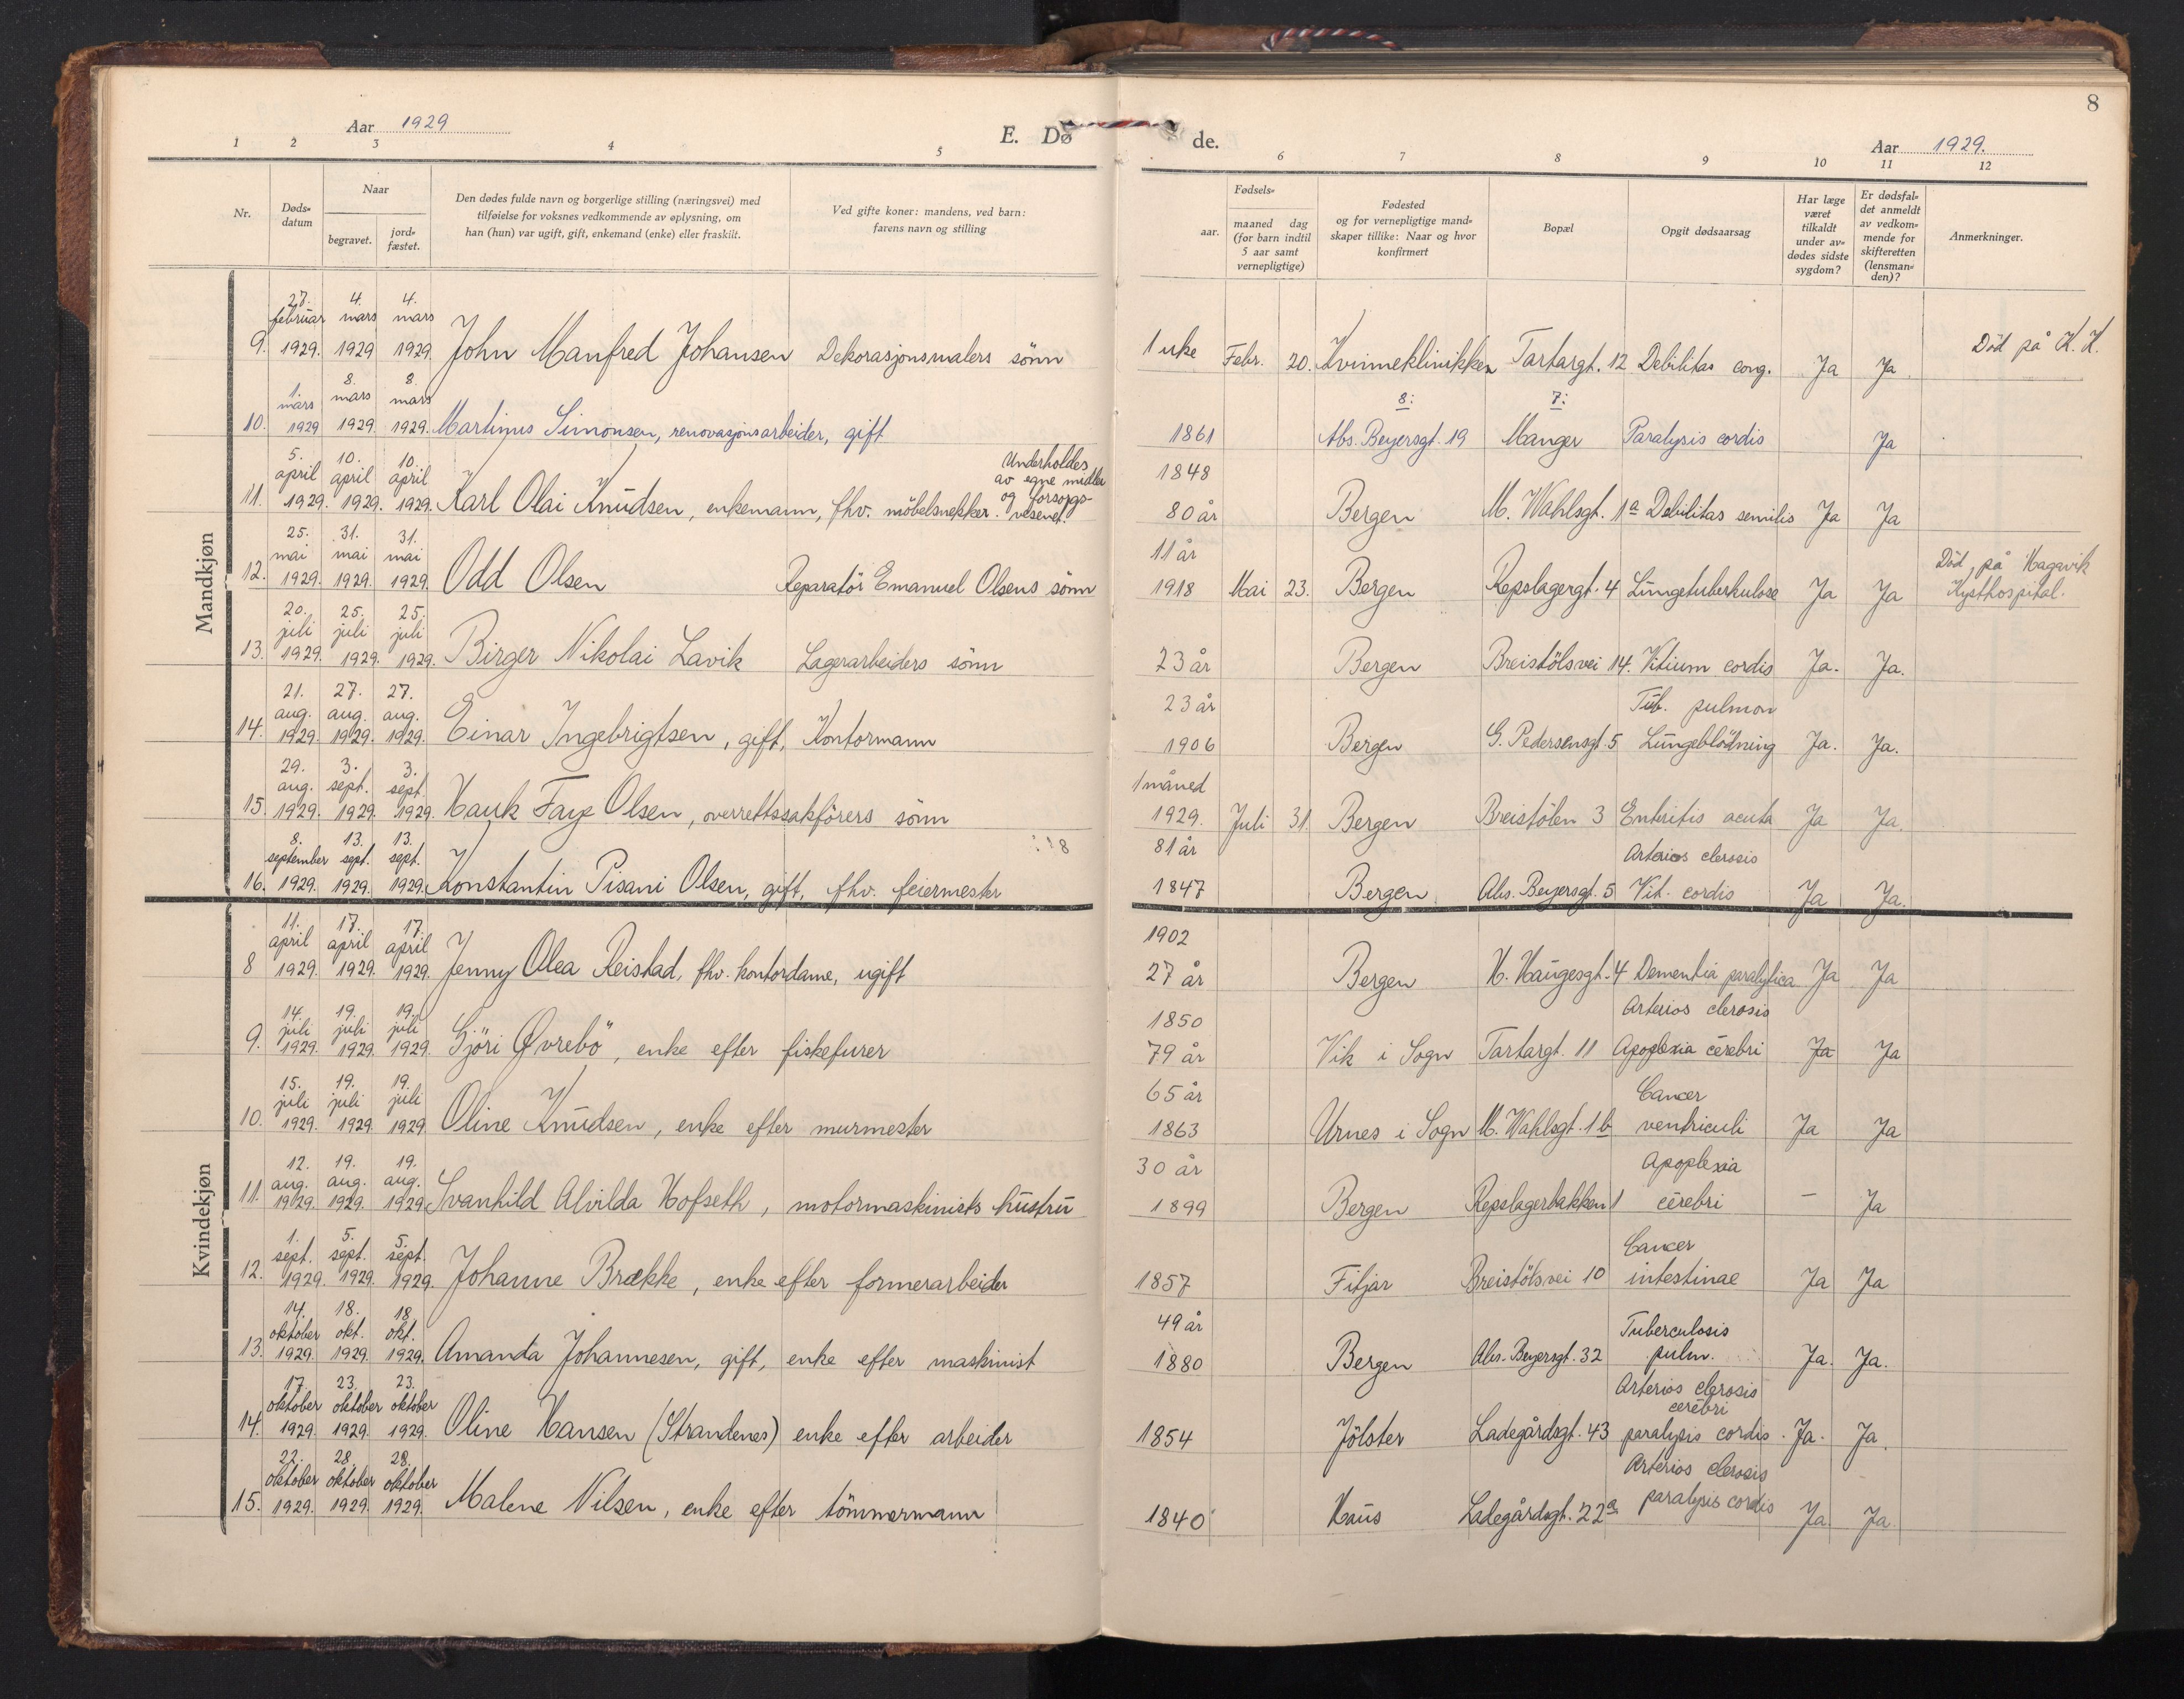 8
Aar 1929
E. Dø de.
Aar 1929.
1 2 3 4 5 6 7 8 9 10 11 12
Nr.
Døds-
datum
Naar
begravet.
jord-
fæstet.
Den dødes fulde navn og borgerlige stilling (næringsvei) med
tilføielse for voksnes vedkommende av oplysning, om
han (hun) var ugift, gift, enkemand (enke) eller fraskilt.
Ved gifte koner: mandens, ved barn:
farens navn og stilling
Fødsels-
aar.
maaned dag
(for barn indtil
5 aar samt
vernepligtige)
Fødested
og for vernepligtige mand-
skaper tillike: Naar og hvor
konfirmert
Bopæl
Opgit dødsaarsag
Har læge
været
tilkaldt
under av-
dødes sidste
sygdom?
Er dødsfal-
det anmeldt
av vedkom-
mende for
skifteretten
(lensman-
den)?
Anmerkninger.
Mandkjøn
27. 4. 4.
februar mars mars
9. 1929. 1929 1929. John Manfred Johansen Dekorasjonsmalers sönn 1 uke Febr. 20. Kvinneklinikken Tartargt. 12 Debilitas cong. Ja Ja. Död på K. K.
1. 8. 8.
mars mars mars 8: 7:
10. 1929 1929. 1929. Martinus Simonsen, renovasjonsarbeider, gift 1861 Abs. Beyersgt. 19 Manger Paralysis cordis Ja
5. 10. 10. Underholdes
april april april av egne midler 1848
11. 1929. 1929. 1929. Karl Olai Knudsen, enkemann, fhv. möbelsnekker. og forsorgs-
vesenet. 80 år Bergen M. Wahlsgt. 1a Debilitas semilis Ja Ja
25. 31. 31.
mai mai mai 11 år Död på Hagavik
12. 1929. 1929. 1929. Odd Olsen Reparatör Emanuel Olsens sönn 1918 Mai 23. Bergen Repslagergt. 4 Lungetuberkulose Ja Ja Kysthospital.
20. 25. 25.
juli juli juli
13. 1929. 1929. 1929. Birger Nikolai Lavik Lagerarbeiders sönn 23 år Bergen Breistölsvei 14. Vitium cordis Ja. Ja.
21. 27. 27.
aug. aug. aug. 23 år Tub. pulmon
14. 1929. 1929. 1929. Einar Ingebrigtsen, gift, Kontormann 1906 Bergen G. Pedersensgt. 5 Lungeblödning Ja. Ja.
29. 3. 3.
aug. sept. sept. 1 måned
15. 1929. 1929. 1929. Hauk Faye Olsen, overrettssakförers sönn 1929. Juli 31 Bergen Breistölen 3 Entritis acuta Ja Ja.
8. 13. 13.
september sept. sept. 81 år Arterios clerosis
16. 1929. 1929. 1929. Konstantin Pisani Olsen, gift, fhv. feiermester 1847 Bergen Abs. Beyersgt. 5 Vit. cordis Ja Ja.
Kvindekjøn
11. 17. 17.
april april april 1902
8 1929. 1929. 1929. Jenny Olea Reistad, fhv. kontordame, ugift 27 år Bergen H. Haugesgt. 4 Dementia paralytica Ja Ja
14. 19. 19.
juli juli juli 1850 Arterios clerosis
9. 1929. 1929. 1929. Gjöri Øvrebö, enke efter fiskefurer 79 år Vik i Sogn Tartargt. 11 Apoplexia cerebri Ja Ja
15. 19. 19.
juli juli juli 65 år Cancer
10. 1929. 1929 1929 Oline Knudsen, enke efter murmester 1863 Urnes i Sogn M. Wahlsgt. 1b ventriculi Ja Ja
12. 19. 19.
aug. aug. aug. 30 år Apoplexia
11. 1929. 1929. 1929. Svanhild Alvilda Hofseth, motormaskinists hustru 1899 Bergen Repslagerbakken 1 cerebri – Ja
1. 5. 5.
sept. sept. sept. Cancer
12. 1929. 1929. 1929. Johanne Brække, enke efter formerarbeider 1857 Fitjar Breistölsvei 10 intestinae Ja Ja
14. 18. 18.
oktober okt. okt. 49 år Tuberculosis
13. 1929. 1929. 1929. Amanda Johannesen, gift, enke efter maskinist 1880 Bergen Abs. Beyersgt. 32 pulm. Ja. Ja.
17. 23. 23. Arterios clerosis
oktober oktober oktober cerebri
14. 1929. 1929. 1929. Oline Hansen (Strandenes) enke efter arbeider 1854 Jölster Ladegårdsgt. 43 paralysis cordis. Ja. Ja.
22. 28. 28.
oktober oktober oktober Arterios clerosis
15. 1929. 1929. 1929. Malene Nilsen, enke efter tömmermann 1840 Haus Ladegårdsgt. 22a paralysis cordis Ja. Ja.